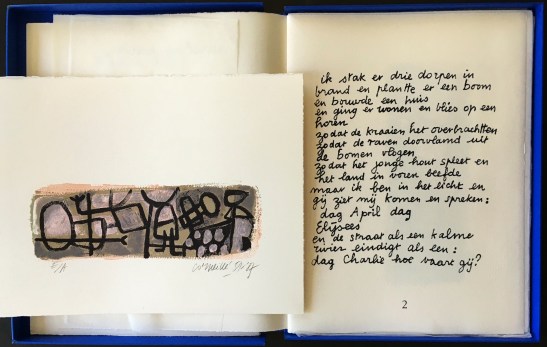 ik stak er drie dorpen in
brand en plantte er een boom
en bouwde een huis
en ging er wonen en blies op een
horen
zodat de kraaien het overbrachtten
zodat de raven doorvlamd uit
de bomen vlogen
zodat het jonge hout spleet en
het land in voren beefde
maar ik ben in het licht en
gij ziet mij komen en spreken:
dag April dag
Elysees
en de straat als een kalme
rivier eindigt als een:
dag Charlie hoe vaart gij?
2